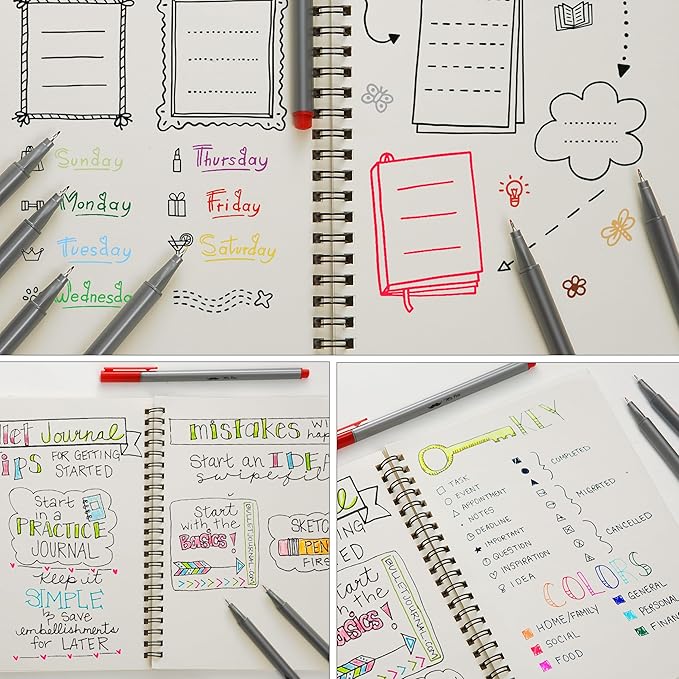 Sunday
Thursday
Monday
Friday
Tuesday
Saturday
Wednesday
Journal
TIPS FOR GETTING
STARTED
Start
in a
PRACTICE
JOURNAL
Keep it
SIMPLE
& save
embellishments
for LATER
mistakes
Start an
Start
with the
Basics!
BULLETJOURNAL.COM
SKETCH
PEN
FIRST
KEY
TASK
EVENT
APPOINTMENT
NOTES
DEADLINE
IMPORTANT
QUESTION
INSPIRATION
IDEA
COMPLETED
MIGRATED
CANCELLED
Start
with the
Basics!
BULLETJOURNAL.COM
COLORS
HOME/FAMILY
SOCIAL
FOOD
GENERAL
PERSONAL